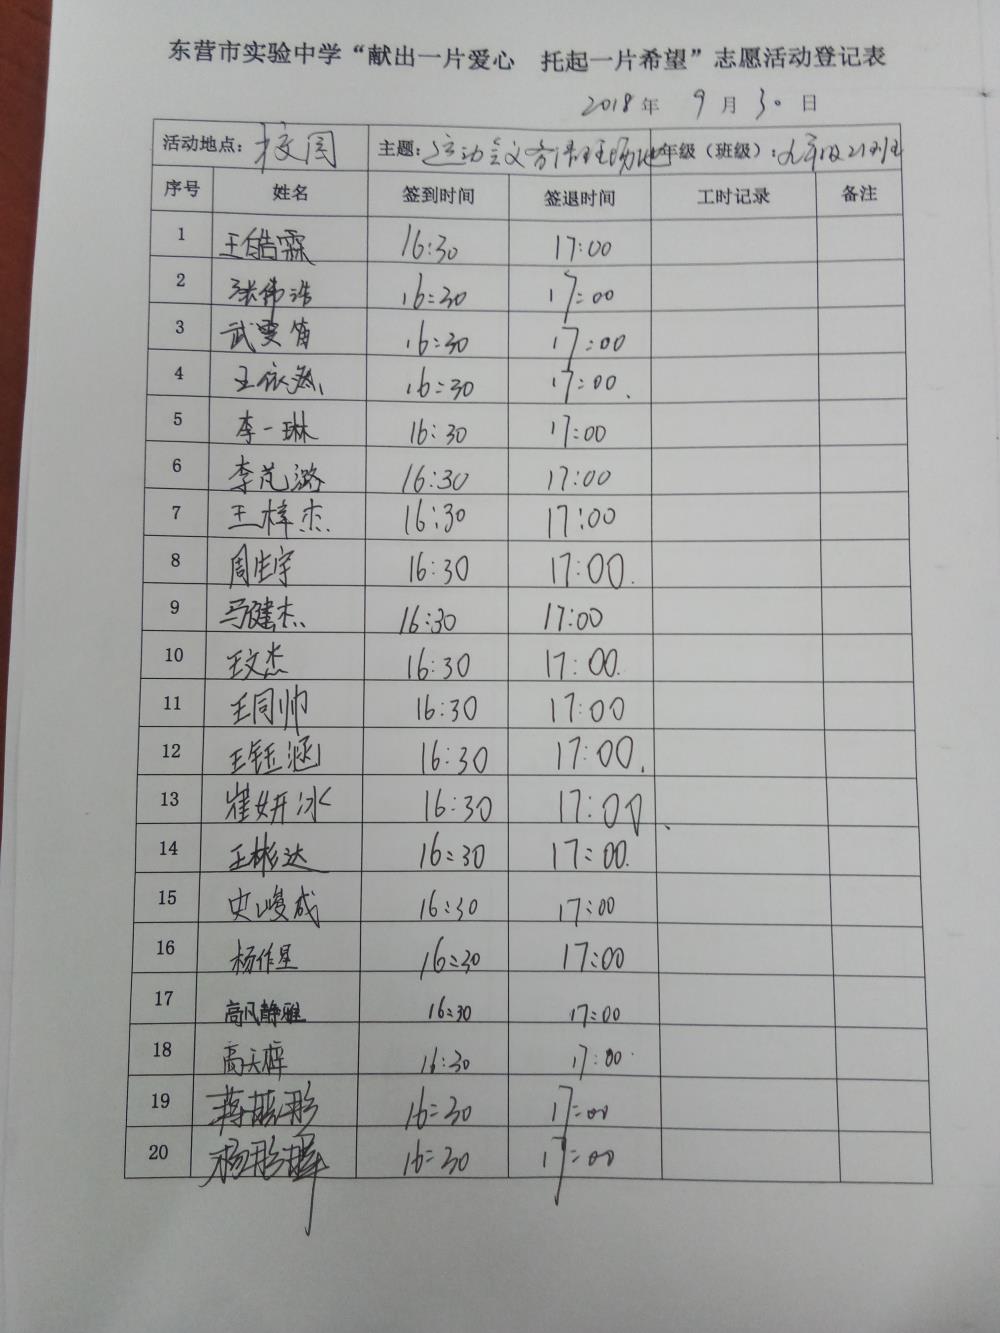 东营市实验中学“献出一片爱心 托起一片希望”志愿活动登记表
2018年 9月30日
活动地点：校园 主题：运动会义务清理场地 年级（班级）：九年级21班
序号 姓名 签到时间 签退时间 工时记录 备注
1 王皓霖 16:30 17:00
2 张伟浩 16:30 17:00
3 武雯笛 16:30 17:00
4 王依 16:30 17:00
5 李一琳 16:30 17:00
6 李芃潞 16:30 17:00
7 王梓杰 16:30 17:00
8 周生宇 16:30 17:00
9 马健杰 16:30 17:00
10 王文杰 16:30 17:00
11 王同帅 16:30 17:00
12 王钰涵 16:30 17:00
13 崔妍冰 16:30 17:00
14 王彬达 16:30 17:00
15 史峻成 16:30 17:00
16 杨作星 16:30 17:00
17 高凤静雅 16:30 17:00
18 高天 16:30 17:00
19 蒋彤 16:30 17:00
20 杨彤 16:30 17:00